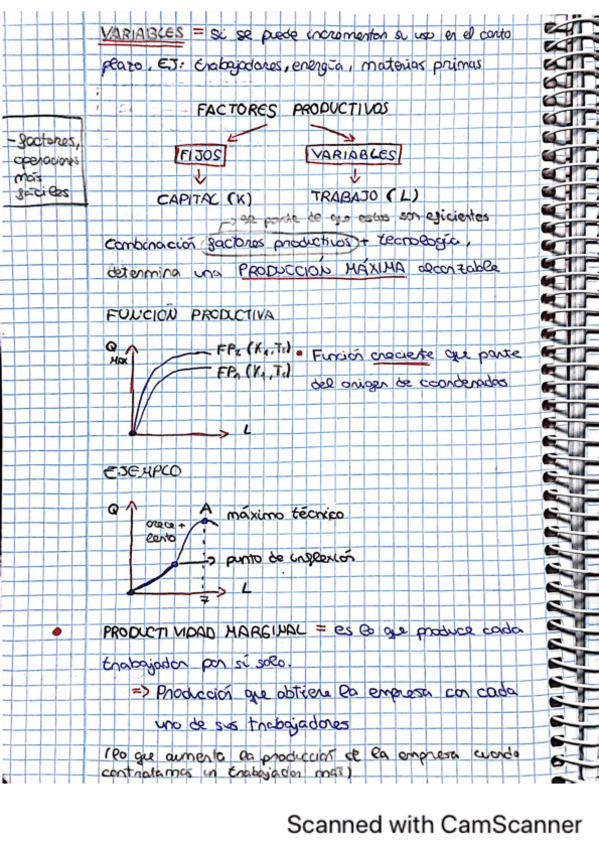 VARIABLES = si se puede incrementar su uso en el corto
plazo. EJ: trabajadores, energía, materias primas
FACTORES PRODUCTIVOS
FIJOS
VARIABLES
- factores,
operaciones
más
fáciles
CAPITAL (K)
TRABAJO (L)
→ se parte de que estos son eficientes
Combinación factores productivos + tecnología,
determina una PRODUCCIÓN MÁXIMA alcanzable
FUNCIÓN PRODUCTIVA
Q
MAX
FP₂ (K₁,T₁)
FP₁ (K₁,T₁)
L
• Función creciente que parte
del origen de coordenadas
EJEMPLO
Q
A
máximo técnico
crece +
lento
→ punto de inflexión
L
7
• PRODUCTIVIDAD MARGINAL = es lo que produce cada
trabajador por sí solo.
=> Producción que obtiene la empresa con cada
uno de sus trabajadores
(lo que aumenta la producción de la empresa cuando
contratamos un trabajador más)
Scanned with CamScanner